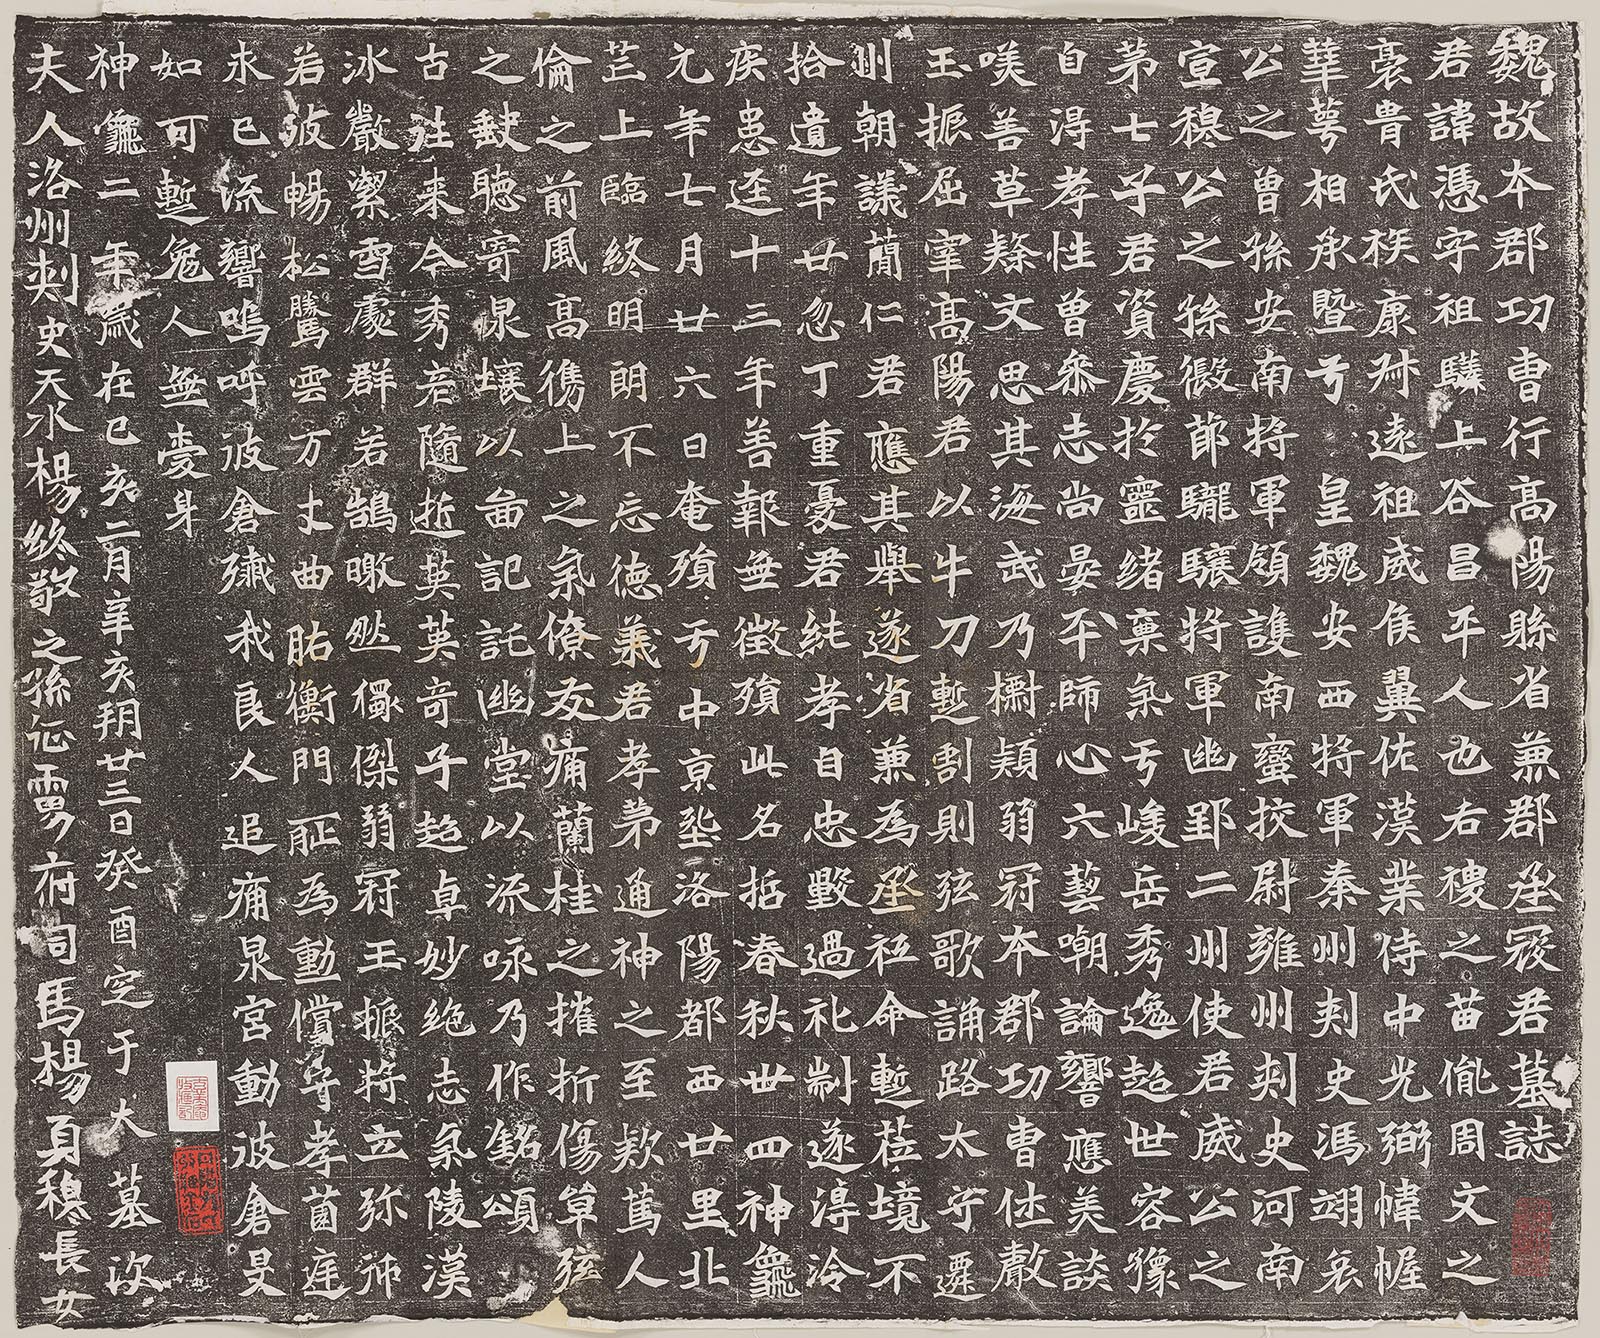 魏故本郡功曹行高陽縣省兼郡丞寇君墓誌
君諱憑字祖驎上谷昌平人也右禮之苗胤周文之
裔貴氏族康叔遠祖威侯翼佐漢業侍中光弼幃幄
華萼相承暨于皇魏安西將軍秦州刺史馮翊哀
公之曾孫安南將軍領護南蠻校尉雍州刺史河南
宣穆公之孫假節龍驤將軍幽郢二州使君威公之
第七子君資慶於靈緒稟氣于峻岳秀逸超世容豫
自得孝性曾參志尚晏平師心六藝嘲論響應美談
嘆善草隸文思其海哉乃櫛穎弱冠本郡功曹任敷
玉振屈宰高陽君以牛刀蹔割則弦歌誦路太守遷
州朝議蕳仁君應其舉遂省兼為丞祗命蹔莅境不
拾遺年廿忽丁重憂君純孝自忠毀過礼制遂得冷
疾患逕十三年善報無徵殞此名哲春秋卅四神龜
元年七月廿六日奄殞于中京𡊮洛陽都西廿里北
芒上臨終明朗不忘德義君孝弟通神之至欵篤人
倫之前風高儁上之氣僚友痛蘭桂之摧折傷草弦
之缺聽寄泉壤以啚記託幽堂以流咏乃作銘頌
古往来今秀君隨哲英英奇子超卓妙绝志氣陵漢
冰嚴潔雪處群若鵠暾然獨傑弱冠玉振將立弥沛
若波暢松騰雲万丈曲肱衡門恥為動償守孝菌庭
永已流響嗚呼彼倉殲我良人追痛泉宮動波倉旻
如可蹔兔人無壹身
神龜二年歲在己亥二月辛亥朔廿三日癸酉定于大墓次
夫人洛州刾史天水楊終敬之孫征虜府司馬楊貞穆長女